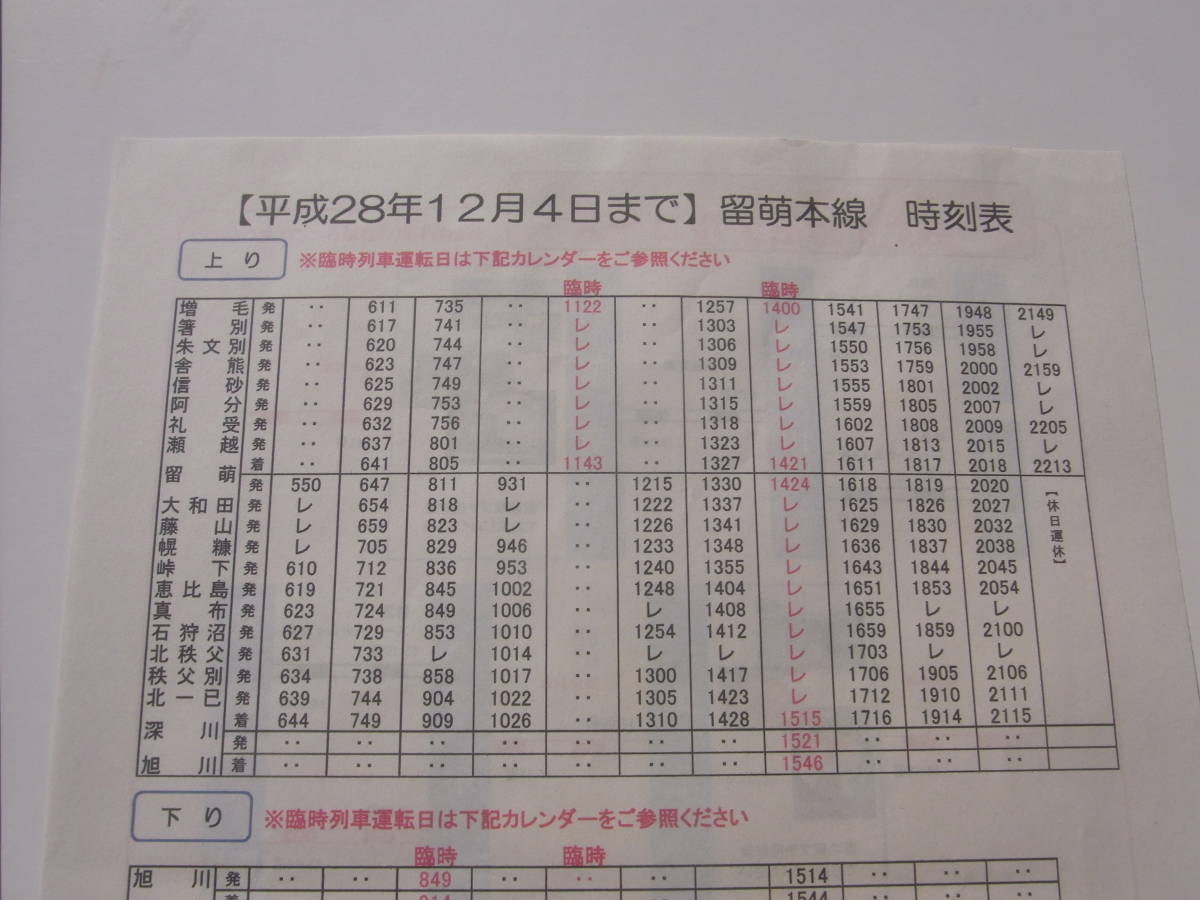 【平成28年12月4日まで】留萌本線　時刻表
上り ※臨時列車運転日は下記カレンダーをご参照ください
臨時 臨時
増毛 発 ‥ 611 735 ‥ 1122 ‥ 1257 1400 1541 1747 1948 2149
箸別 発 ‥ 617 741 ‥ レ ‥ 1303 レ 1547 1753 1955 レ
朱文別 発 ‥ 620 744 ‥ レ ‥ 1306 レ 1550 1756 1958 レ
舎熊 発 ‥ 623 747 ‥ レ ‥ 1309 レ 1553 1759 2000 2159
信砂 発 ‥ 625 749 ‥ レ ‥ 1311 レ 1555 1801 2002 レ
阿分 発 ‥ 629 753 ‥ レ ‥ 1315 レ 1559 1805 2007 レ
礼受 発 ‥ 632 756 ‥ レ ‥ 1318 レ 1602 1808 2009 2205
瀬越 発 ‥ 637 801 ‥ レ ‥ 1323 レ 1607 1813 2015 レ
留萌 着 ‥ 641 805 ‥ 1143 ‥ 1327 1421 1611 1817 2018 2213
発 550 647 811 931 ‥ 1215 1330 1424 1618 1819 2020 【休日運休】
大和田 発 レ 654 818 レ ‥ 1222 1337 レ 1625 1826 2027
藤山 発 レ 659 823 レ ‥ 1226 1341 レ 1629 1830 2032
幌糠 発 レ 705 829 946 ‥ 1233 1348 レ 1636 1837 2038
峠下 発 610 712 836 953 ‥ 1240 1355 レ 1643 1844 2045
恵比島 発 619 721 845 1002 ‥ 1248 1404 レ 1651 1853 2054
真布 発 623 724 849 1006 ‥ レ 1408 レ 1655 レ レ
石狩沼 発 627 729 853 1010 ‥ 1254 1412 レ 1659 1859 2100
北秩父 発 631 733 レ 1014 ‥ レ レ レ 1703 レ レ
秩父別 発 634 738 858 1017 ‥ 1300 1417 レ 1706 1905 2106
北一已 発 639 744 904 1022 ‥ 1305 1423 レ 1712 1910 2111
深川 着 644 749 909 1026 ‥ 1310 1428 1515 1716 1914 2115
発 ‥ ‥ ‥ ‥ ‥ ‥ ‥ 1521 ‥ ‥ ‥
旭川 着 ‥ ‥ ‥ ‥ ‥ ‥ ‥ 1546 ‥ ‥ ‥
下り ※臨時列車運転日は下記カレンダーをご参照ください
臨時 臨時
旭川 発 ‥ ‥ 849 ‥ ‥ ‥ ‥ 1514 ‥ ‥ ‥